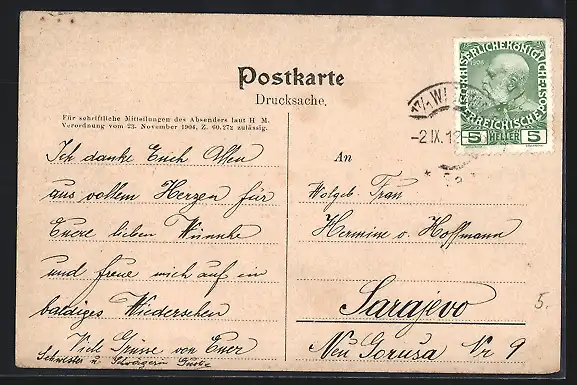 Postkarte
Drucksache.
Für schriftliche Mitteilungen des Absenders laut H M.
Verordnung vom 23. November 1904, Z. 60.272 zulässig.
Ich danke Euch Allen
aus vollem Herzen für
Euere lieben Wünsche
und freue mich auf ein
baldiges Wiedersehen
Viele Grüsse von Euer
Schwester u. Schwägerin
An
Wolgeb. Frau
Hermine v. Hoffmann
Sarajevo
Neu Gorusa Nr 9
5.
KAISERLICHE KÖNIGLICHE
ÖSTERREICHISCHE POST
1908
5 HELLER 5
17/1 WI
-2.IX.1